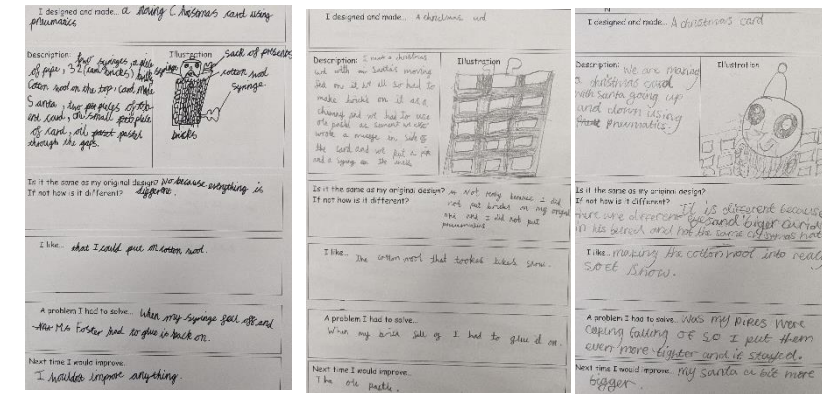 I designed and made... a moving Christmas card using
pneumatics
Description: two syringes, a piece
of pipe, 32 (card bricks)
Coton wool on the top, card Mable
Santa, two
card, small
of card, oil pastel
through the gaps.
Illustration
sack of presents
cotton wool
syringe
bricks
Is it the same as my original design? No because everything is
If not how is it different? different.
I like... that I could put on cotton wool.
A problem I had to solve... When my syringe fell off and
Ms Foster had to glue it back on.
Next time I would improve...
I wouldnt improve anything.
I designed and made... A christmas
Description: I made a christmas
with my Santa's moving
so had to
make bricks on it as a
chimney and we had to use
wrote a on side of
the card and we put a
and a on the
Illustration
Is it the same as my original design? Not really because I did
If not how is it different? not put bricks on my
one and I did not put
pneumatics
I like... The cotton wool that looked like snow.
A problem I had to solve...
When my brick fell of I had to glue it on.
Next time I would improve...
The
I designed and made... A christmas card
Description: We are making
a christmas card
with santa going up
and down using
pneumatics.
Illustration
Is it the same as my original design?
If not how is it different? It is different because
there are different and biger
in his beired and not the same christmas
I like... making the cotton wool into
soft snow.
A problem I had to solve... was my pipes were
falling of so I put them
even more tighter and it stayed.
Next time I would improve... my santa a bit more
bigger.